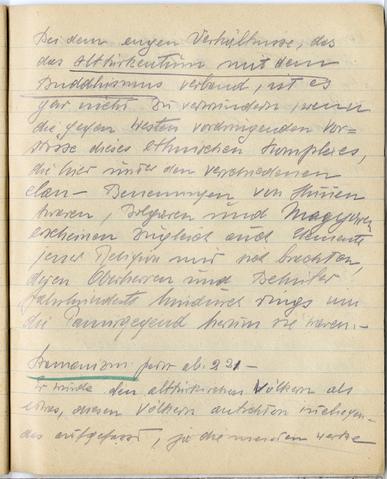 Bei dem engen Verhältnisse, das
das Alttürkentum mit dem
Buddhismus verband, ist es
gar nicht zu verwundern, wenn
die gegen Westen vordringenden Vor=
stösse dieses ethnischen Komplexes,
die hier unter den verschiedenen
clan- Benennungen von Hunnen
Avaren, Bolgaren und Magyaren
erscheinen zugleich auch Elemente
jener Religion mit sich brachten,
deren Oberherren und Behüter
Jahrhunderte hindurch rings um
die Pamirgegend herum sie waren.-
ab. 221 -
Er wurde den alttürkischen Völkern als
etwas, diesen Völkern
das aufgefasst, ja die meisten Werke